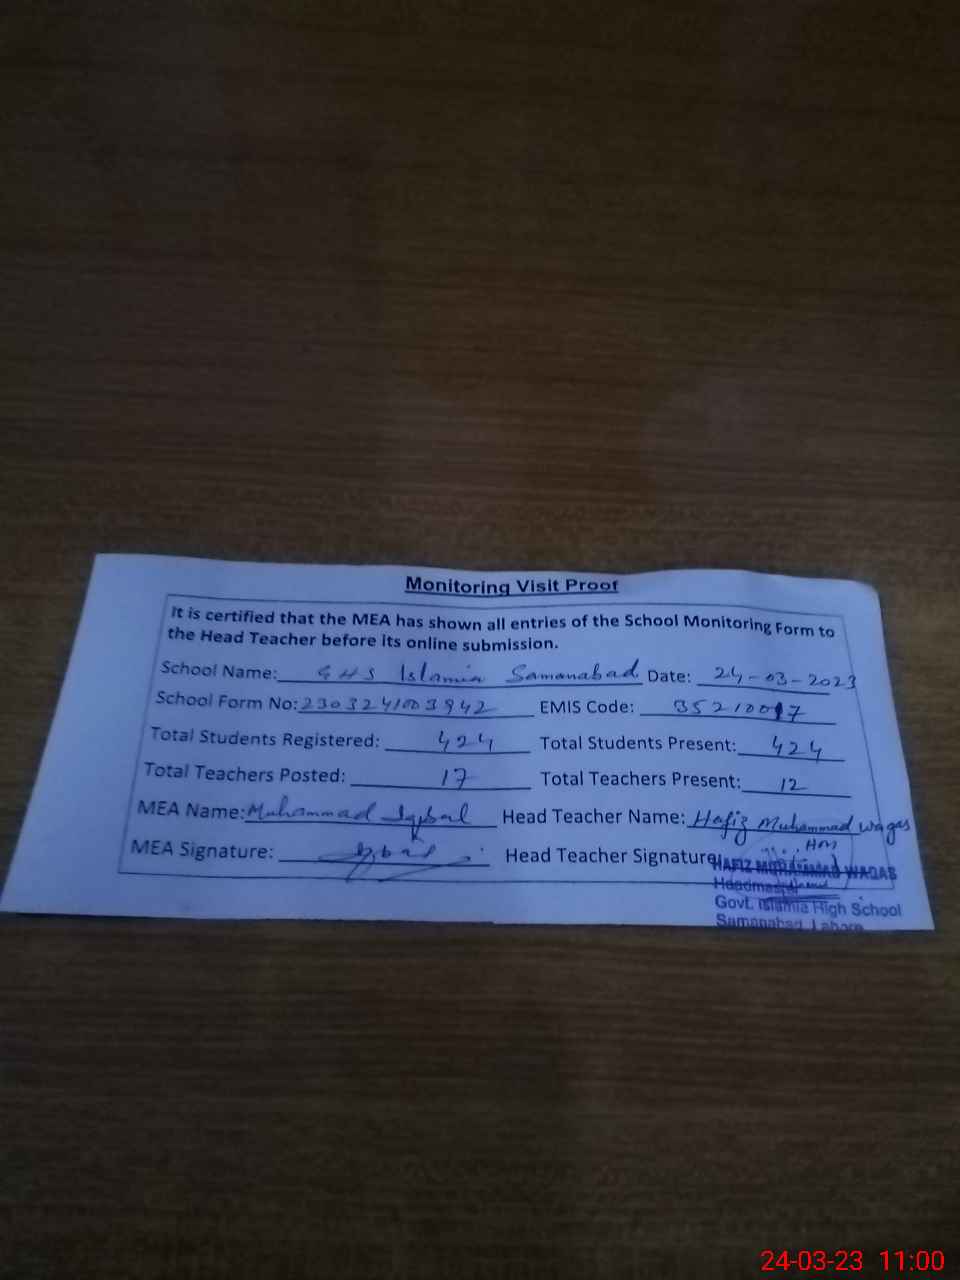 Monitoring Visit Proof
It is certified that the MEA has shown all entries of the School Monitoring Form to
the Head Teacher before its online submission.
School Name: GHS Islamia Samanabad Date: 24-03-2023
School Form No: 2303241003942 EMIS Code: 35210017
Total Students Registered: 424 Total Students Present: 424
Total Teachers Posted: 17 Total Teachers Present: 12
MEA Name: Muhammad Iqbal Head Teacher Name: Hafiz Muhammad Waqas
HM
MEA Signature: Iqbal Head Teacher Signature
HAFIZ MUHAMMAD WAQAS
Headmaster
Govt. Islamia High School
Samanabad, Lahore
24-03-23 11:00